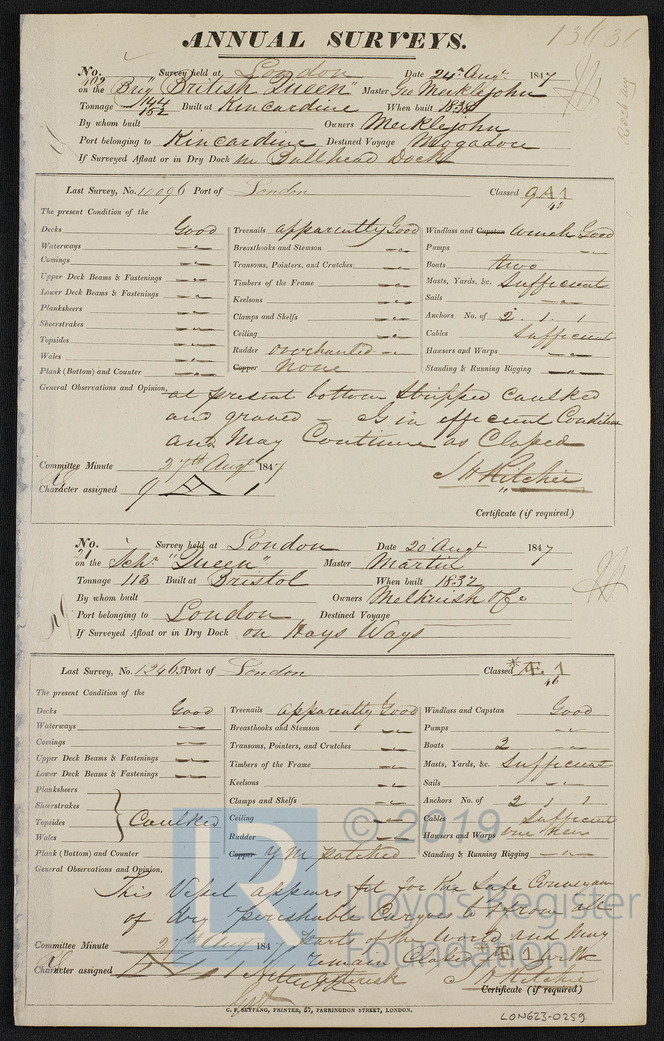 13636
ANNUAL SURVEYS.
No. 402 Survey held at London Date 24th Augt 1847
on the Brig "British Queen" Master Geo Meiklejohn
Tonnage 144/152 Built at Kincardine When built 1838
By whom built Owners Meiklejohn
Port belonging to Kincardine Destined Voyage Mogadore
If Surveyed Afloat or in Dry Dock in Bullhead Dock
Last Survey, No. 10096 Port of London Classed 9A1
The present Condition of the
Decks Good Treenails apparently Good Windlass and Capstan winch Good
Waterways Breasthooks and Stemson Pumps
Comings Transoms, Pointers, and Crutches Boats two
Upper Deck Beams & Fastenings Timbers of the Frame Masts, Yards, &c. Sufficient
Lower Deck Beams & Fastenings Keelsons Sails
Planksheers Clamps and Shelfs Anchors No. of 2. 1. 1
Sheerstrakes Ceiling Cables Sufficient
Topsides Rudder overhauled Hawsers and Warps
Wales Copper None Standing & Running Rigging
Plank (Bottom) and Counter
General Observations and Opinion, at present bottom stripped caulked
and graved – Is in efficient Condition
and May Continue as Classed
Committee Minute 27th Augt 1847
Character assigned 9 A 1
Certificate (if required)
No. 21 Survey held at London Date 20 Augt 1847
on the Schr "Queen" Master Martin
Tonnage 113 Built at Bristol When built 1832
By whom built Owners Melhuish & Co
Port belonging to London Destined Voyage
If Surveyed Afloat or in Dry Dock on Hays Ways
Last Survey, No. 12465 Port of London Classed *Æ 1
46
The present Condition of the
Decks Good Treenails apparently Good Windlass and Capstan Good
Waterways Breasthooks and Stemson Pumps
Comings Transoms, Pointers, and Crutches Boats 2
Upper Deck Beams & Fastenings Timbers of the Frame Masts, Yards, &c. Sufficient
Lower Deck Beams & Fastenings Keelsons Sails
Planksheers Clamps and Shelfs Anchors No. of 2 1 1
Sheerstrakes Ceiling Cables Sufficient
Topsides Caulked Rudder Hawsers and Warps
Wales Copper Y M patched Standing & Running Rigging
Plank (Bottom) and Counter
General Observations and Opinion,
This Vessel appears fit for the Safe Conveyance
of dry & perishable Cargoes to & from all
Committee Minute 27th Augt 1847 parts of the World and May
remain Classed *Æ 1 with
Character assigned Æ 1 the asterisk
Certificate (if required)
C. F. SEYFANG, PRINTER, 57, FARRINGDON STREET, LONDON.
LON623-0259
© 2019
Lloyd's Register
Foundation
LR